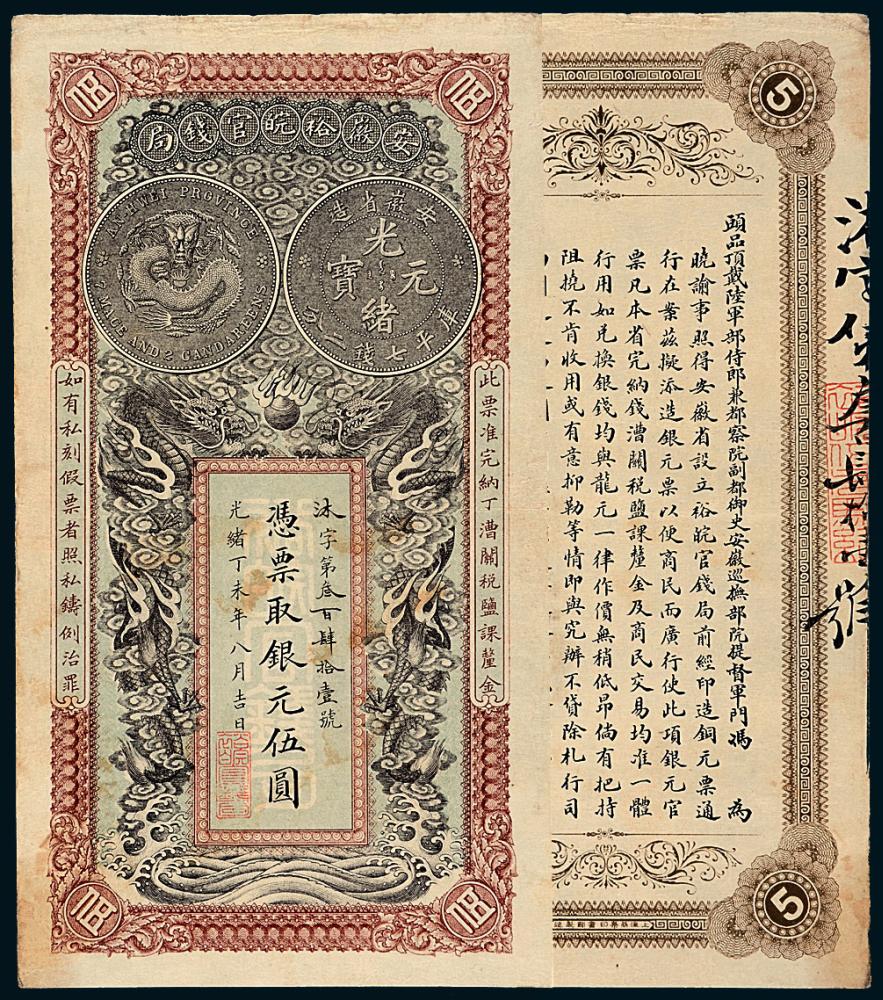 安徽裕皖官錢局
AN-HWEI PROVINCE
7 MACE AND 2 CANDAREENS
安徽省造
光緒元寶
庫平七錢二分
此票准完納丁漕關稅鹽課釐金
如有私刻假票者照私鑄例治罪
沐字第叁百肆拾壹號
憑票取銀元伍圓
光緒丁未年八月吉日
伍
伍
伍
伍
5
5
頭品頂戴陸軍部侍郎兼都察院副都御史安徽巡撫部院提督軍門馮 為
曉諭事照得安徽省設立裕皖官錢局前經印造銅元票通
行在案茲擬添造銀元票以便商民而廣行使此項銀元官
票凡本省完納錢漕關稅鹽課釐金及商民交易均准一體
行用如兑換銀錢均與龍元一律作價無稍低昂倘有把持
阻撓不肯收用或有意抑勒等情即與究辦不貸除札行司